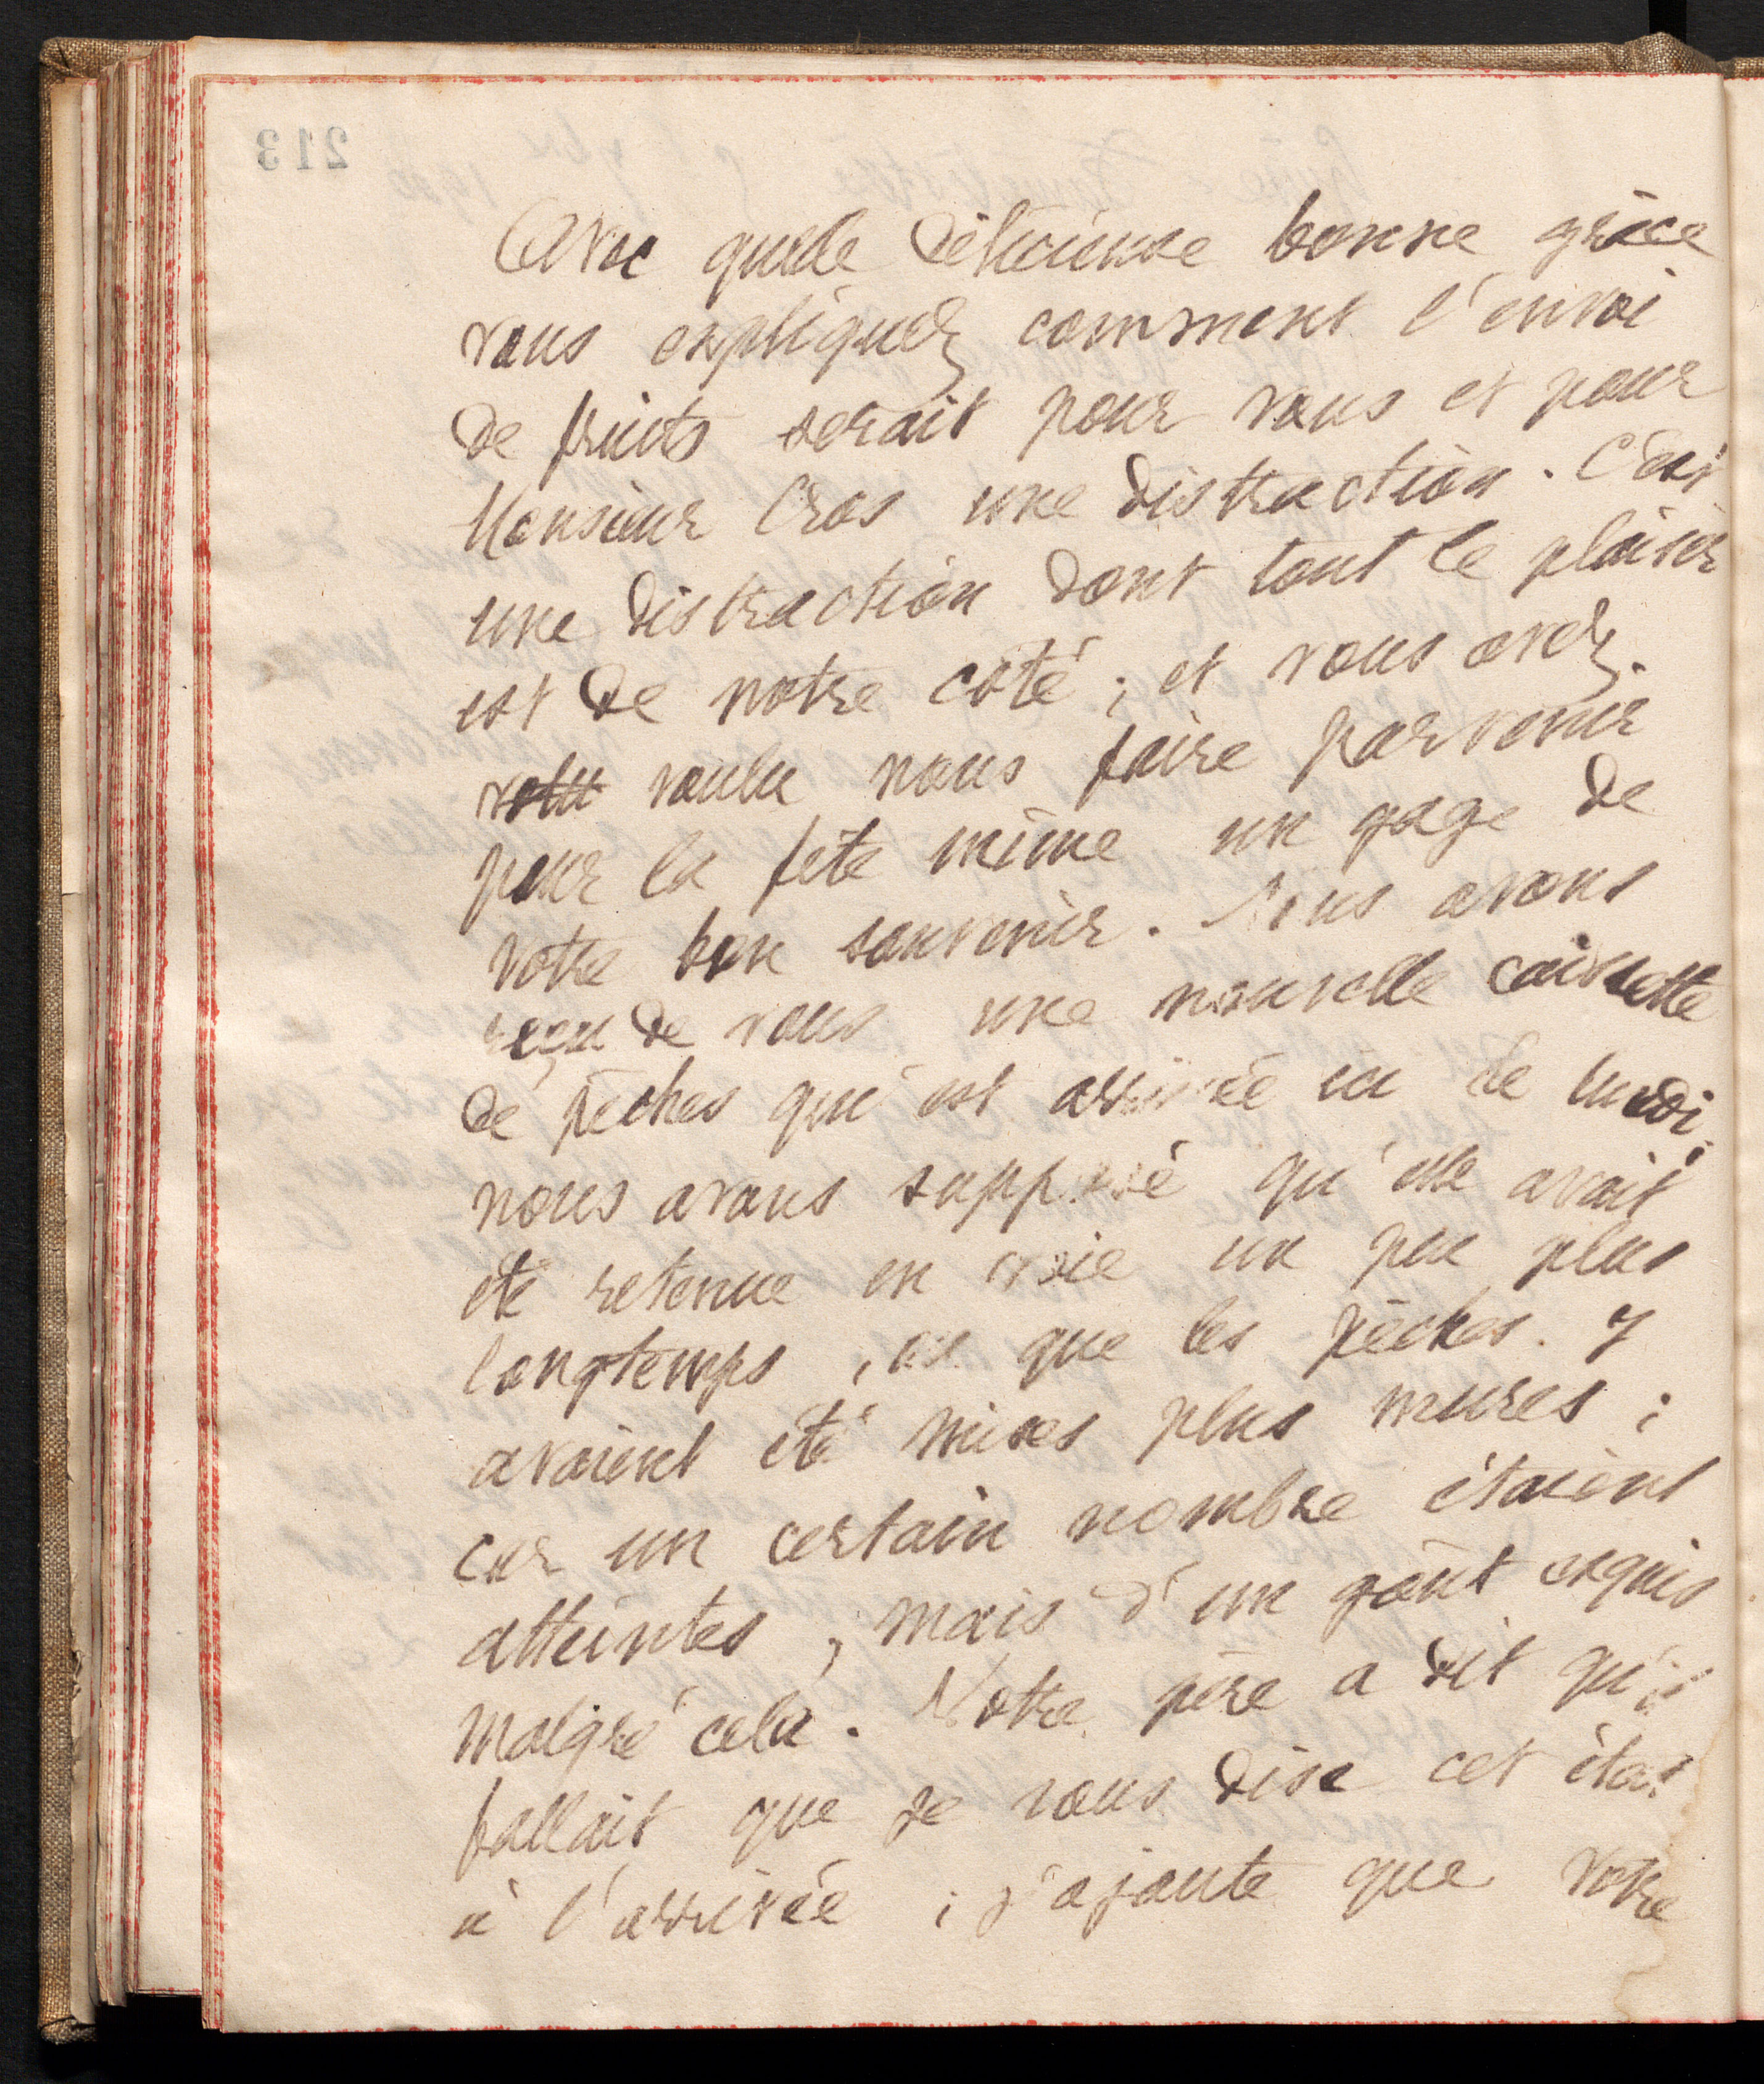 213
Avec quelle délicieuse bonne grâce
vous expliquez comment l'envoi
de fruits serait pour vous et pour
Monsieur Cros une distraction. C'est
une distraction dont tout le plaisir
est de notre côté ; et vous avez
voulu nous faire parvenir
pour la fête même un gage de
votre bon souvenir. Nous avons
reçu de vous une nouvelle caissette
de pêches qui est arrivée ici le lundi ;
nous avons supposé qu'elle avait
été retenue en voie un peu plus
longtemps, que les pêches y
avaient été mises plus mures ;
car un certain nombre étaient
atteintes, mais d'un goût exquis
malgré cela. Notre père a dit qu'il
fallait que je vous dise cet état
à l'arrivée ; j'ajoute que votre